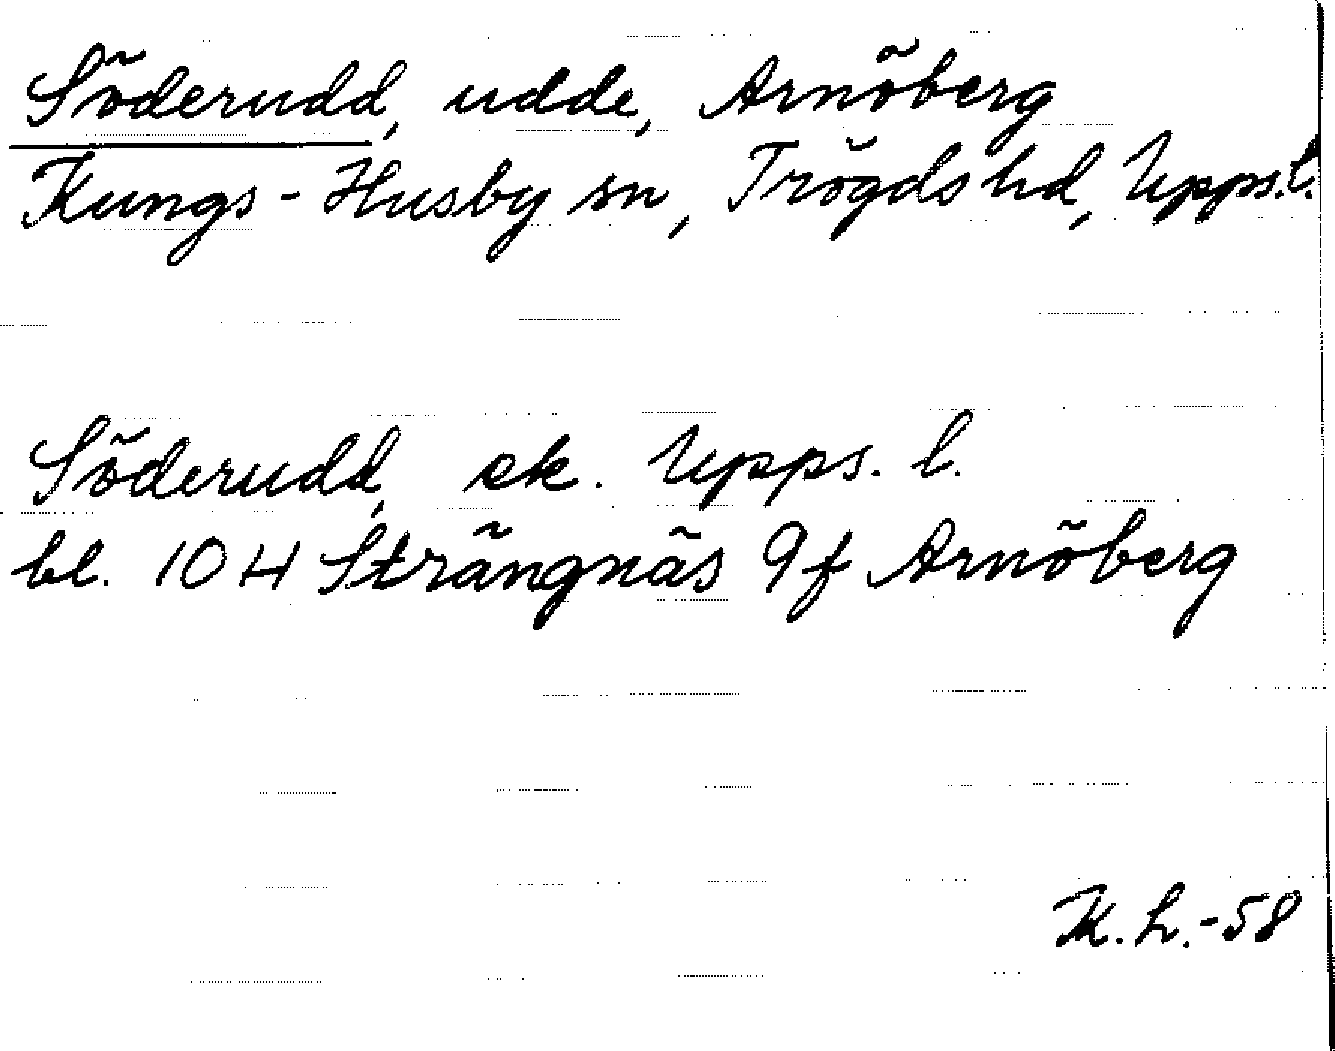 Söderudd, udde, Arnöberg
Kungs-Husby sn, Trögds hd, Upps.l.
Söderudd, ek. Upps. l.
bl. 10 H Strängnäs 9f Arnöberg
K.h.-58